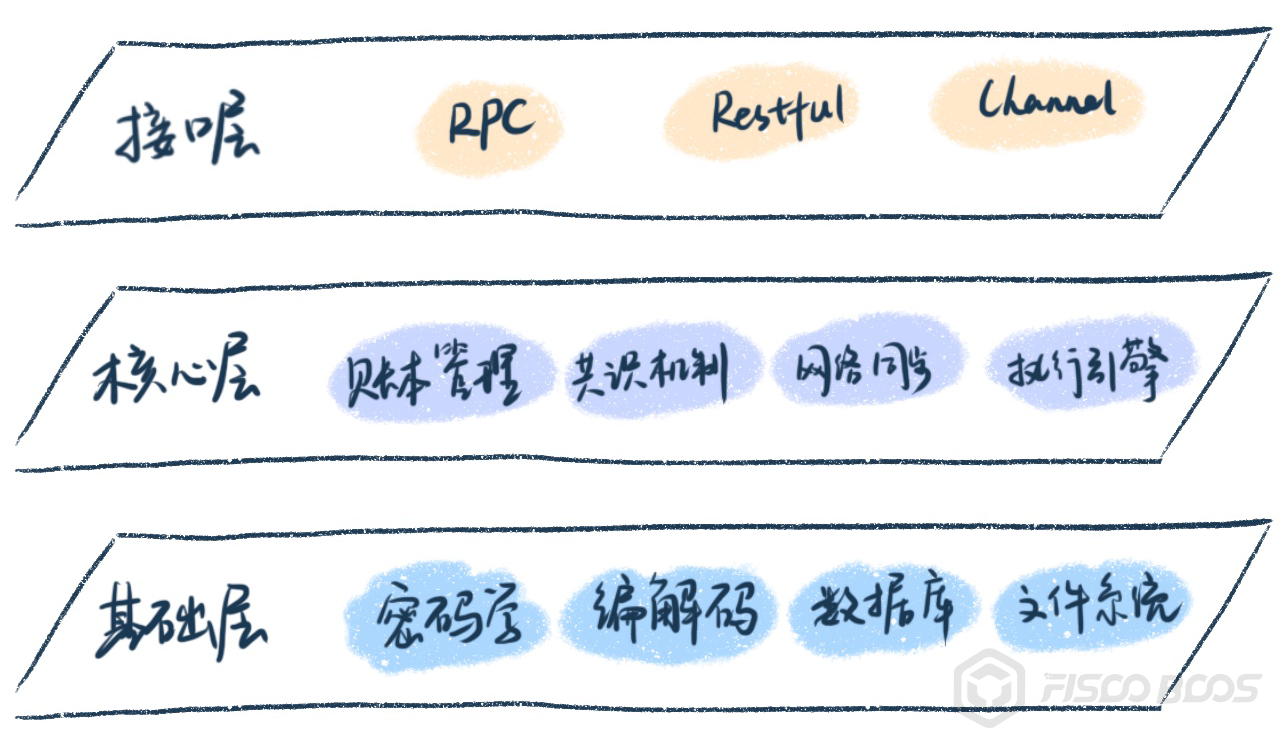 接口层 RPC Restful Channel
核心层 账本管理 共识机制 网络同步 执行引擎
基础层 密码学 编解码 数据库 文件系统
FISCO BCOS